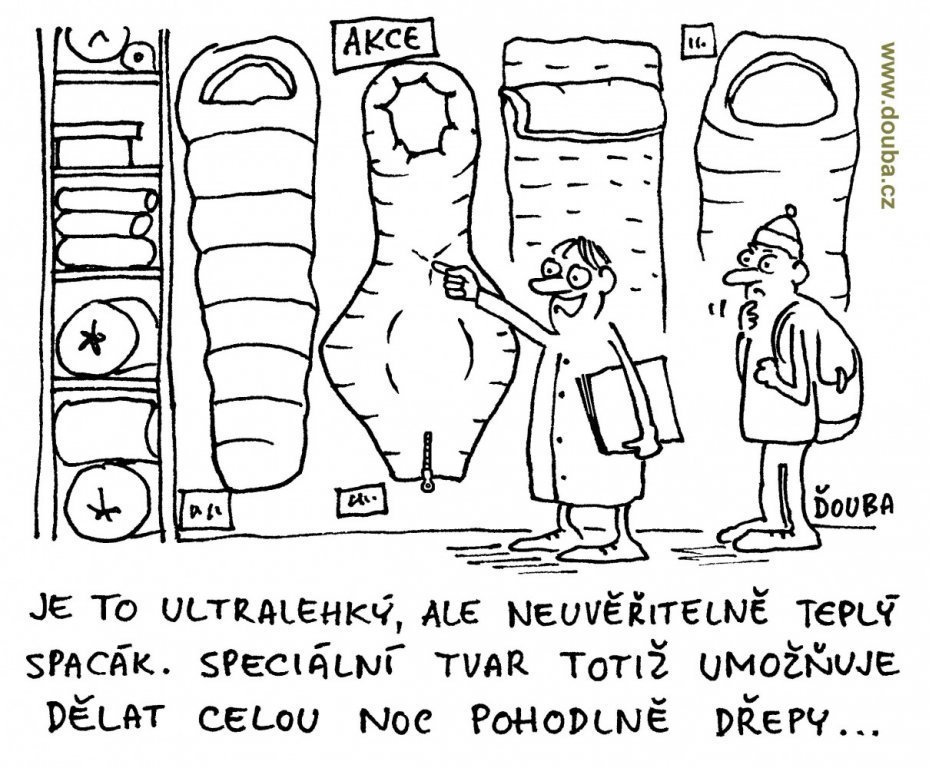 AKCE
www.douba.cz
ĎOUBA
JE TO ULTRALEHKÝ, ALE NEUVĚŘITELNĚ TEPLÝ
SPACÁK. SPECIÁLNÍ TVAR TOTIŽ UMOŽŇUJE
DĚLAT CELOU NOC POHODLNĚ DŘEPY...